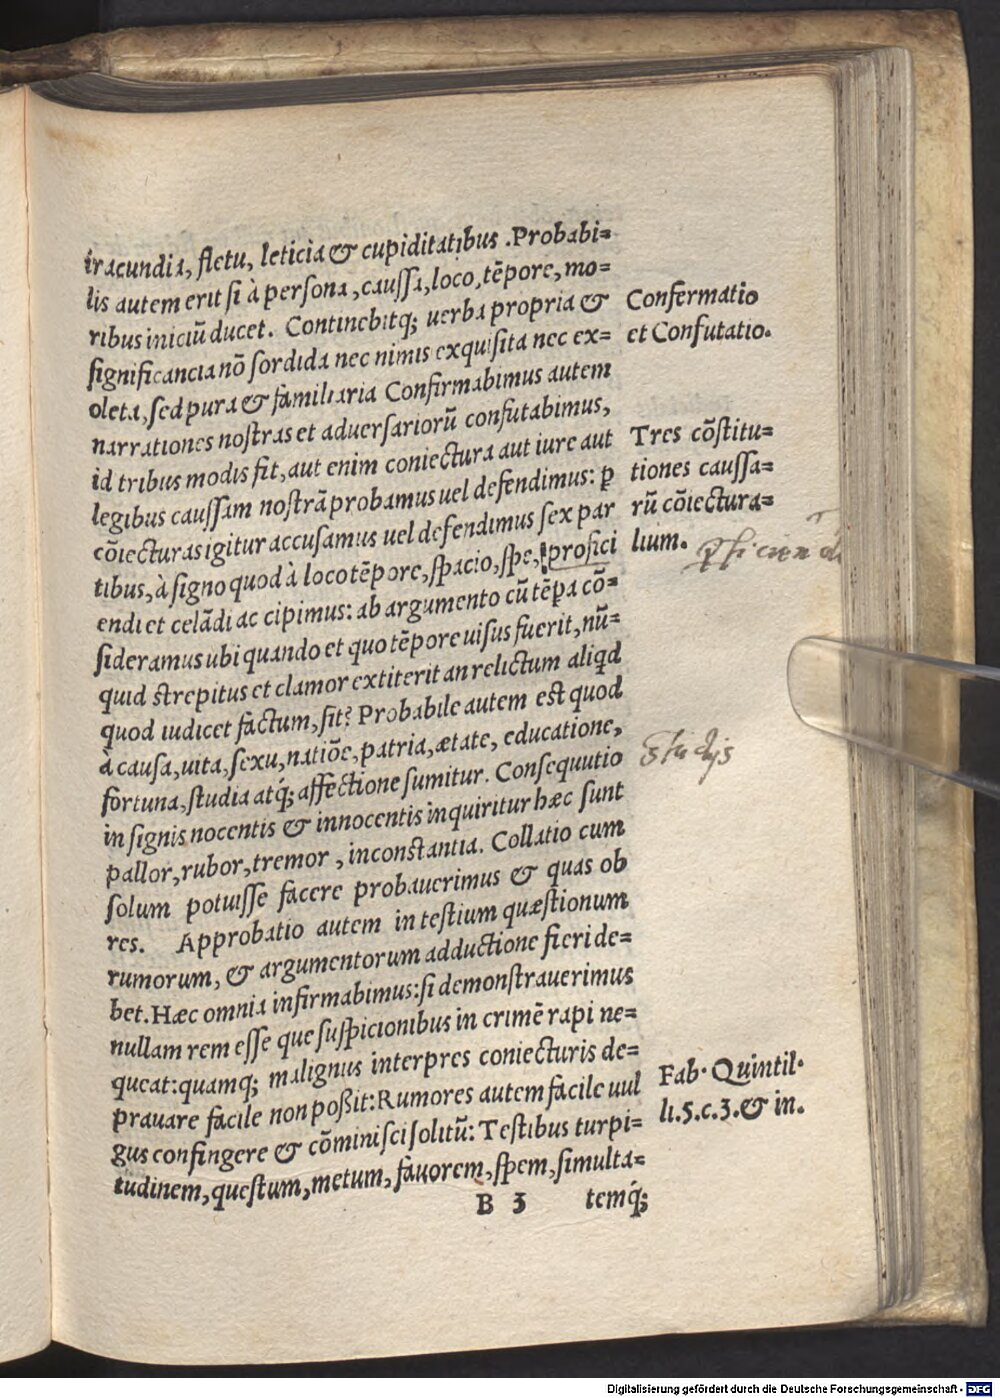 iracundia, fletu, leticia & cupiditatibus .Probabi=
lis autem erit si à persona, caussa, loco, tēpore, mo=
ribus iniciū ducet. Continebitq; uerba propria &
significancia nō sordida nec nimis exquisita nec ex=
oleta, sed pura & familiaria Confirmabimus autem
narrationes nostras et aduersariorū confutabimus,
id tribus modis fit, aut enim coniectura aut iure aut
legibus caussam nostrā probamus uel defendimus: p
cōiecturas igitur accusamus uel defendimus sex par
tibus, à signo quod à loco tēpore, spacio, spe, profici
endi et celādi ac cipimus: ab argumento cū tēpa cō=
sideramus ubi quando et quo tēpore uisus fuerit, nū=
quid strepitus et clamor extiterit an relictum aliqd
quod iudicet factum, sit? Probabile autem est quod
à causa, uita, sexu, natiōe, patria, ætate, educatione,
fortuna, studia atq́; affectione sumitur. Consequutio
in signis nocentis & innocentis inquiritur hæc sunt
pallor, rubor, tremor , inconstantia. Collatio cum
solum potuisse facere probauerimus & quas ob
res. Approbatio autem in testium quæstionum
rumorum, & argumentorum adductione fieri de=
bet. Hæc omnia infirmabimus: si demonstrauerimus
nullam rem esse que suspicionibus in crimē rapi ne=
queat: quamq; malignus interpres coniecturis de=
prauare facile non poßit: Rumores autem facile uul
gus confingere & cōminisci solitū: Testibus turpi=
tudinem, questum, metum, fauorem, spem, simulta=
B 3 temq́;
Confermatio
et Confutatio.
Tres cōstitu=
tiones caussa=
rū cōiectura=
lium.
studijs
Fab. Quintil.
li.5.c.3.& in.
Digitalisierung gefördert durch die Deutsche Forschungsgemeinschaft - DFG